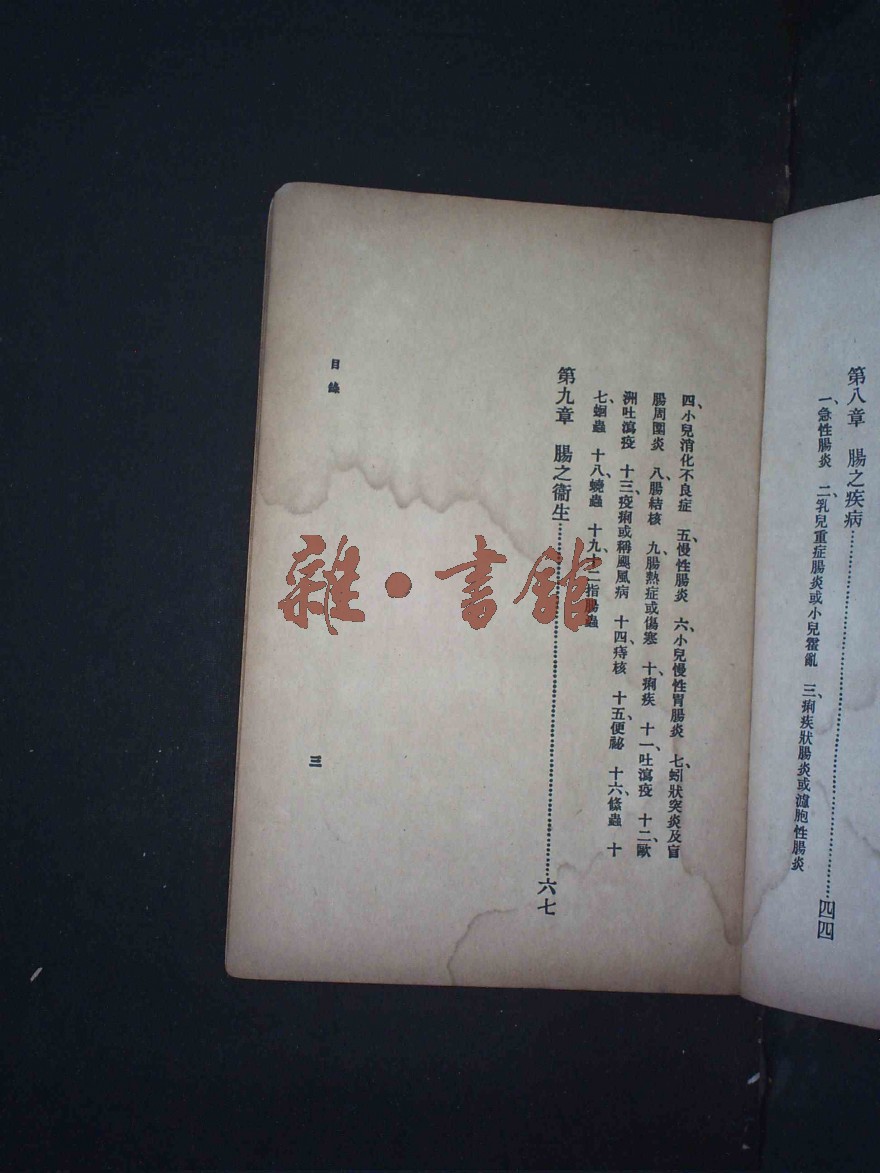 第八章　腸之疾病……四四
一、急性腸炎　二、乳兒重症腸炎或小兒霍亂　三、痢疾狀腸炎或濾胞性腸炎
四、小兒消化不良症　五、慢性腸炎　六、小兒慢性胃腸炎　七、蚓狀突炎及盲
腸周圍炎　八、腸結核　九、腸熱症或傷寒　十、痢疾　十一、吐瀉疫　十二、歐
洲吐瀉疫　十三、疫痢或稱颶風病　十四、痔核　十五、便祕　十六、條蟲　十
七、蛔蟲　十八、蟯蟲　十九、十二指腸蟲
第九章　腸之衞生……六七
目錄
三
雜·書館